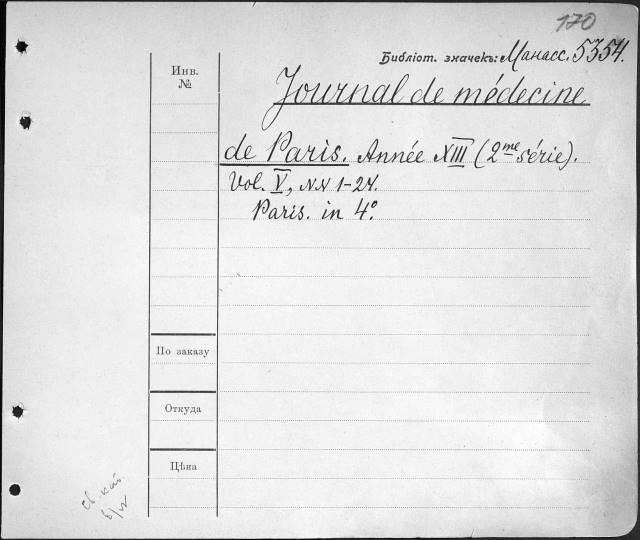 170
Библіот. значекъ: Манасс. 5354.
Инв.
№
Journal de médecine
de Paris. Année XIII (2me série).
Vol. V, NN 1-24.
Paris. in 4º
По заказу
Откуда
Цѣна
св. кат.